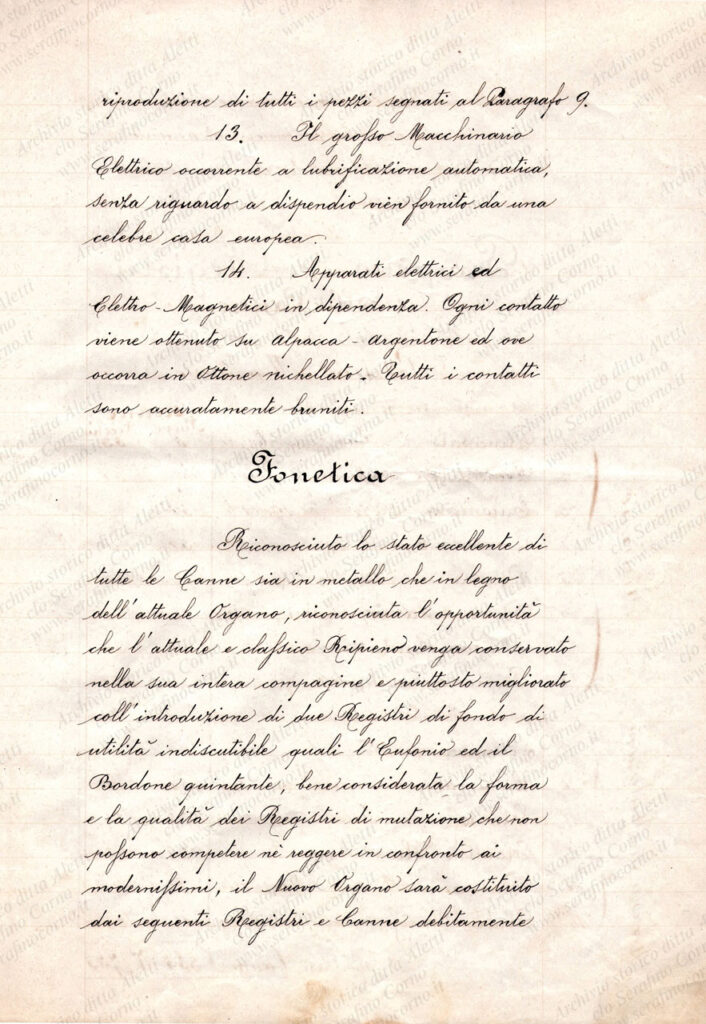 riproduzione di tutti i pezzi segnati al Paragrafo 9.
13. Il grosso Macchinario
Elettrico occorrente a lubrificazione automatica,
senza riguardo a dispendio vien fornito da una
celebre casa europea.
14. Apparati elettrici ed
Elettro-Magnetici in dipendenza. Ogni contatto
viene ottenuto su alpacca-argentone ed ove
occorra in Ottone nichellato. Tutti i contatti
sono accuratamente bruniti.
Fonetica
Riconosciuto lo stato eccellente di
tutte le Canne sia in metallo che in legno
dell'attuale Organo, riconosciuta l'opportunità
che l'attuale e classico Ripieno venga conservato
nella sua intera compagine e piuttosto migliorato
coll'introduzione di due Registri di fondo di
utilità indiscutibile quali l'Eufonio ed il
Bordone quintante, bene considerata la forma
e la qualità dei Registri di mutazione che non
possono competere nè reggere in confronto ai
modernissimi, il Nuovo Organo sarà costituito
dai seguenti Registri e Canne debitamente
Archivio storico ditta Aletti
c/o Serafino Corno
www.serafinocorno.it